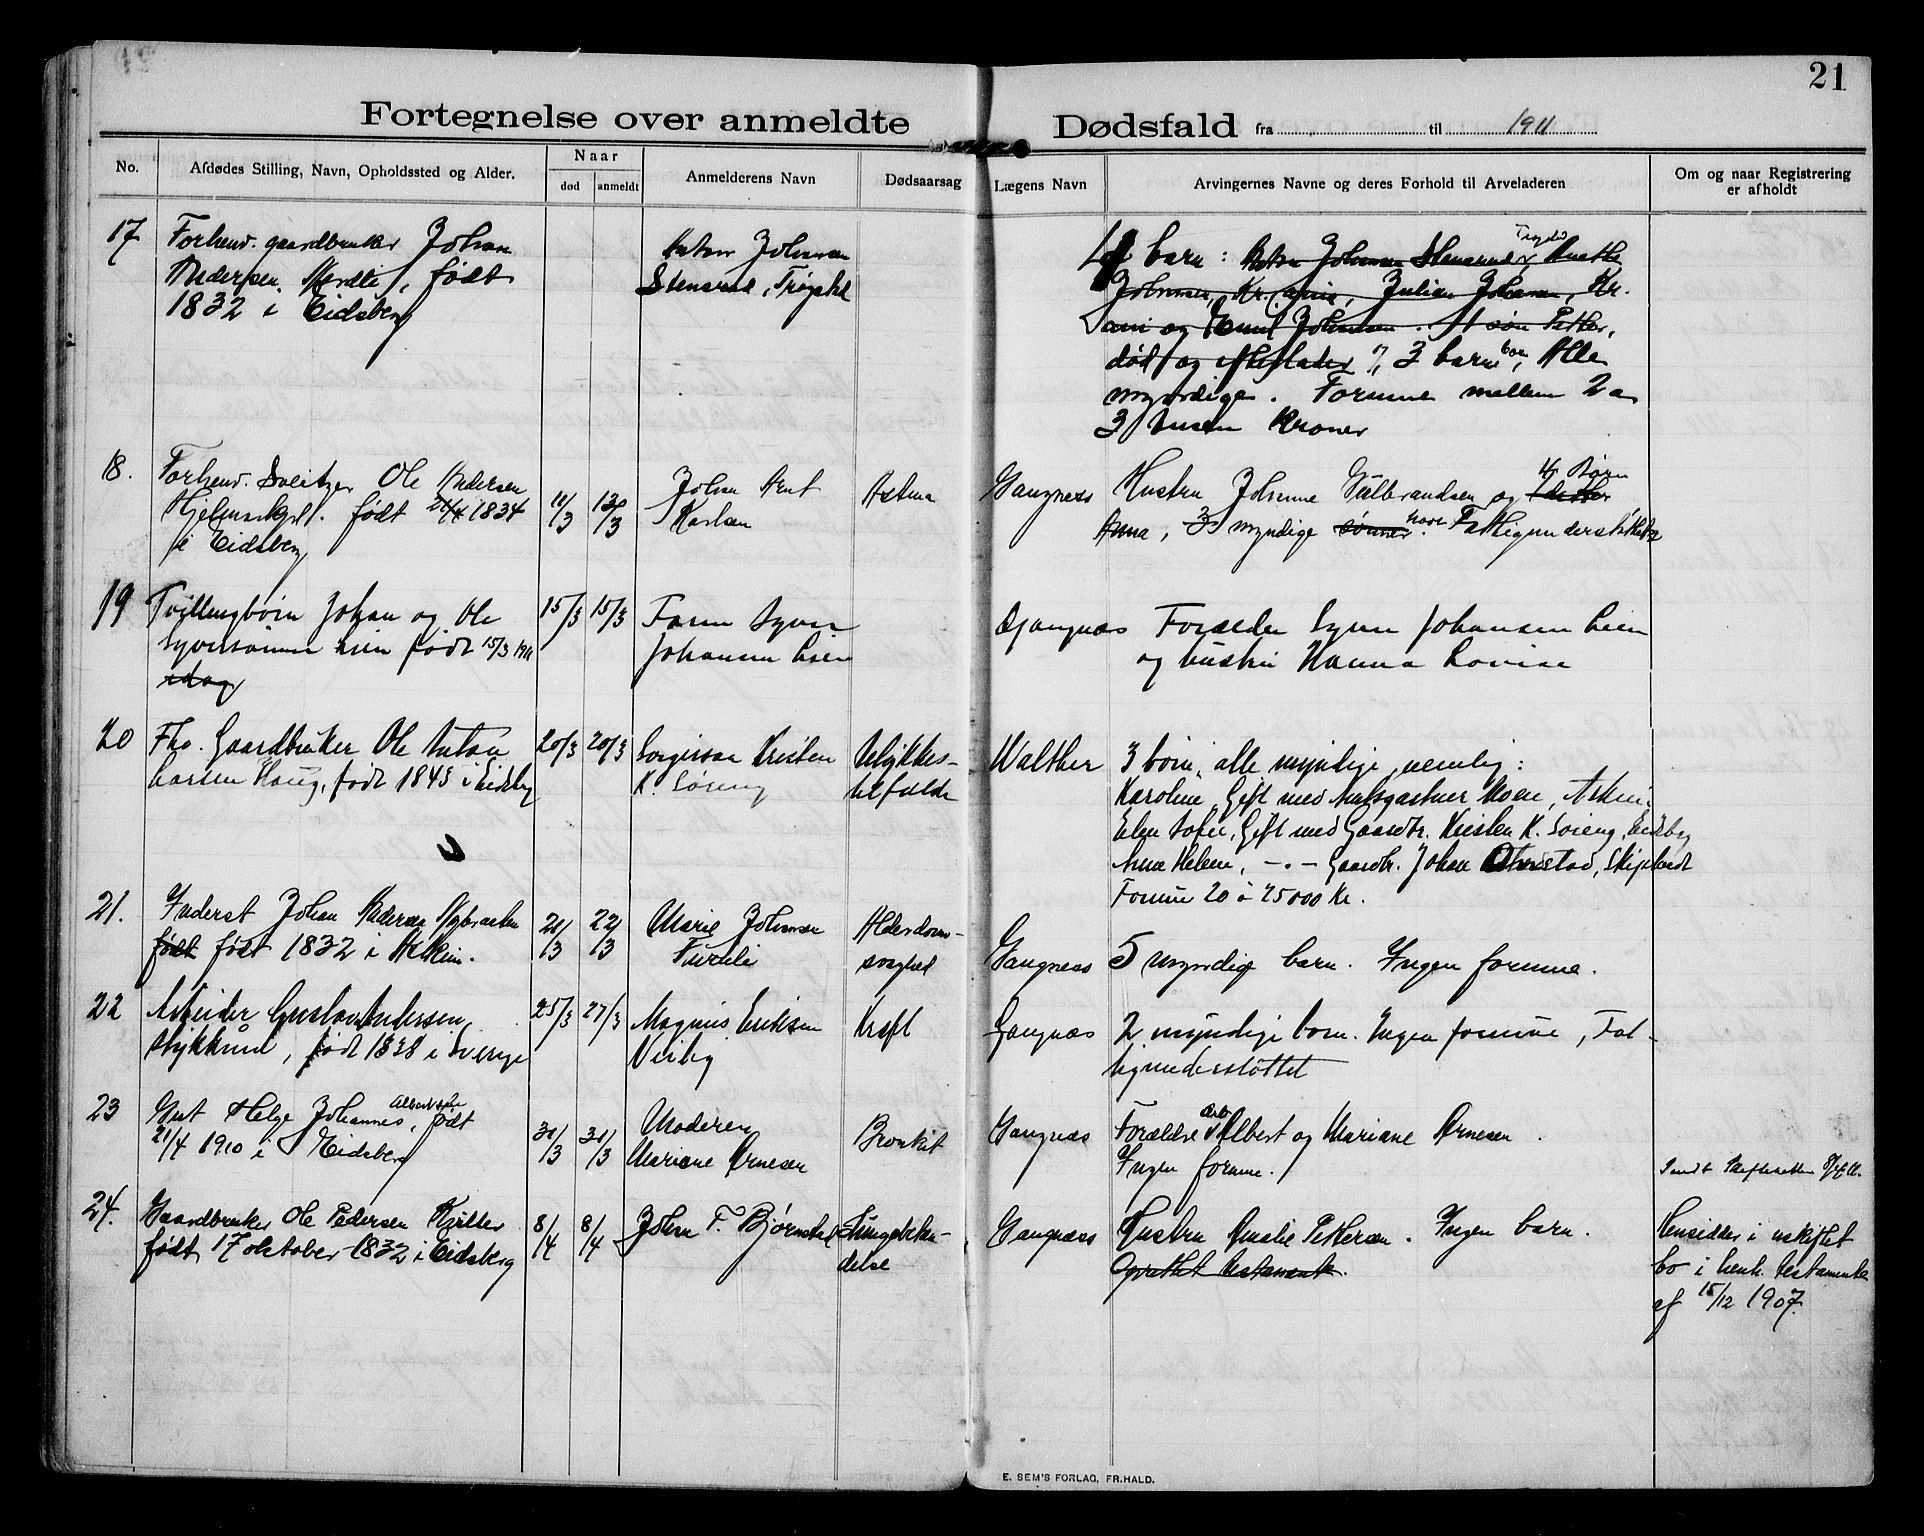 21
Fortegnelse over anmeldte Dødsfald fra til 1911
No.
Afdødes Stilling, Navn, Opholdssted og Alder.
Naar
død
anmeldt
Anmelderens Navn
Dødsaarsag
Lægens Navn
Arvingernes Navne og deres Forhold til Arveladeren
Om og naar Registrering
er afholdt
17
Forhenv. gaardbruker Johan
Pedersen, født
1832 i Eidsberg
Anton Johnsen
Stensrud, Trøgstad
barn : Anton Johnsen Stensrud
Johnsen, Kr.ania, Julius Johnsen, Kr.
ania og Emil Johnsen. 1 søn Petter,
død og efterlader 3 barn, Alle
myndige. Formue mellem 2 a
3 tusen Kroner
18.
Forhenv. Sveitzer Ole Andersen
født 1834
i Eidsberg
11/3
13/3
Johan Arnt
Karlsen
Astma
Gangnæss
Hustru Johanne Gulbrandsen og 4 Børn
Anna, 3 myndige sønner. havt Fattigunderstøttelse
19
Tvillingbørn Johan og Ole
Syversønner Lien født 15/3 1911
idag
15/3
15/3
Faren Syver
Johansen Lien
Gangnæs
Forælder Syver Johansen Lien
og hustru Hanna Lovise
20
Fhv. Gaardbruker Ole Anton
Larsen Haug, født 1843 i Eidsbg
20/3
20/3
Svigersøn Kristen
K. Søreng
Ulykkes-
tilfælde
Walther
3 børn, alle myndige, nemlig:
Karoline, Gift med Moen, Askim
Elen Sofie, Gift med Gaardbr. Kristen K. Søreng, Eidsberg
Anna Helene, -"- Gaardbr. Johan Skiptvedt
Formue 20 à 25000 Kr.
21.
Inderst Johan Pedersen Nybraaten
født født 1832 i Askim.
21/3
22/3
Marie Johnsen
Furuli
Alderdoms-
svaghed
Gangnæss
5 myndige barn. Ingen formue.
22
Arbeider Gustav Andersen
født 1838 i Sverige
25/3
27/3
Magnus Eriksen
Viseby
Kreft
Gangnæs
2 myndige barn. Ingen formue, Fat-
tigunderstøttet
23
Gut Helge Johannes Albertsen, født
21/4 1910 i Eidsberg
31/3
31/3
Moderen
Mariane Arnesen
Bronkit
Gangnæs
Forældre Arb. Albert og Mariane Arnesen.
Ingen formue.
Sendt Skifteretten 8/4 11.
24.
Gaardbruker Ole Pedersen
født 17 oktober 1832 i Eidsberg
8/4
8/4
John F. Bjørnstad
Lungebeten-
delse
Gangnæss
Hustru Amalie Pettersen. Ingen barn.
Oprettet testamente.
Hensidder i uskiftet
bo i henh. testamente
af 15/12 1907.
E. SEM'S FORLAG, FR.HALD.